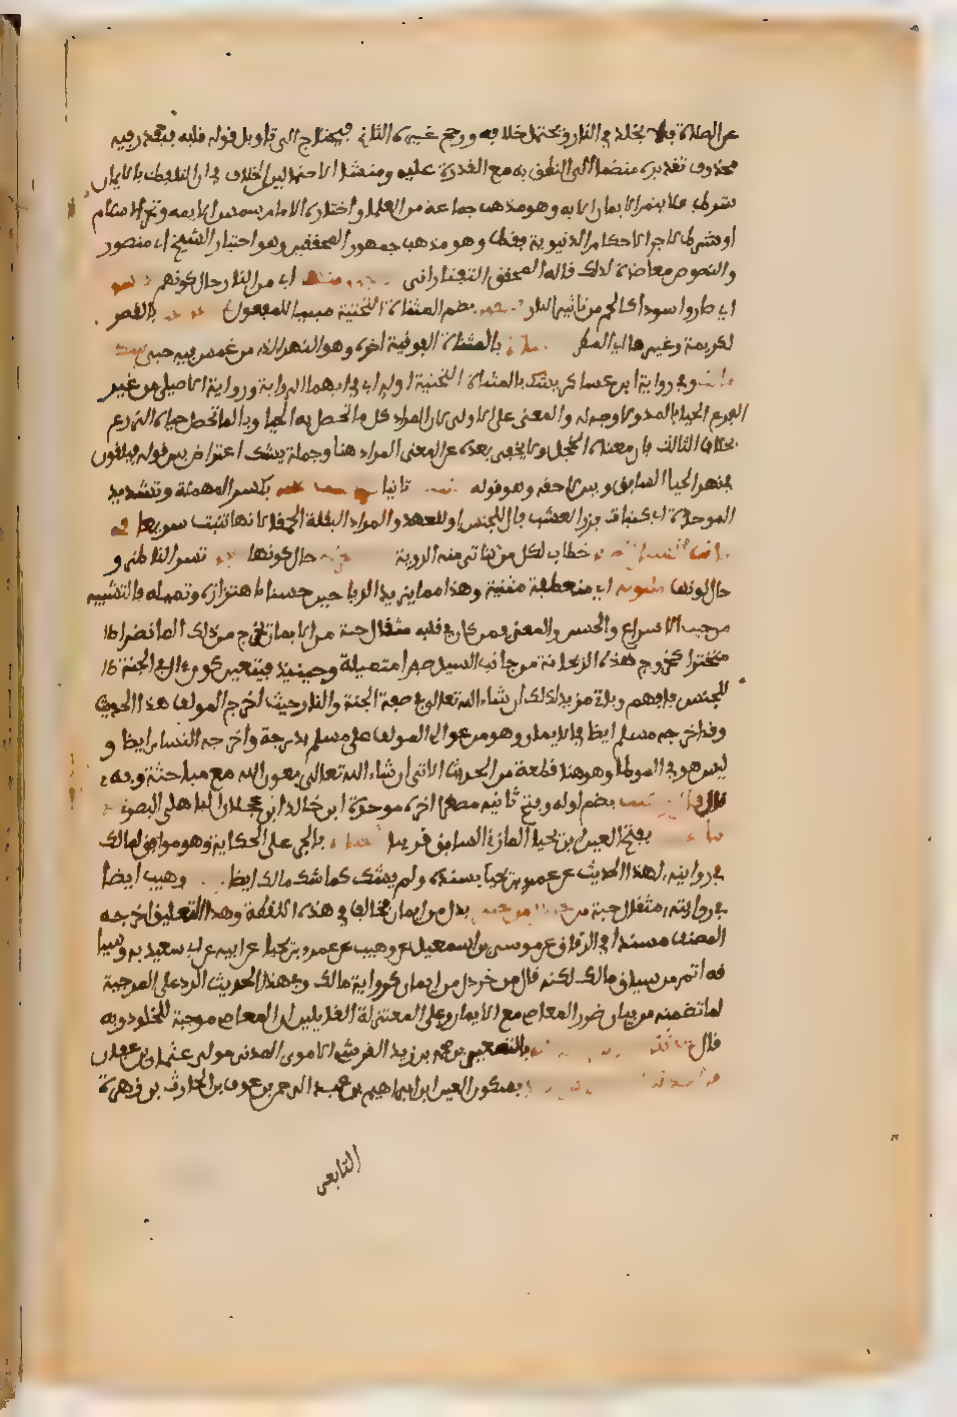 عن الصلاة فلا يخلد في النار ويحتمل خلافه ورجح غيره الثاني فيحتاج الى تاويل قوله قلبه فيقدر فيه
محذوف تقديره منضما الى النطق به مع القدرة عليه ومنشا الاحتمالين الخلاف في ان التلفظ بالايمان
شرط فلا يتم الايمان الا به وهو مذهب جماعة من العلما واختاره الامام شمس الايمه وفخر الاسلام
او شرط لاجرا الاحكام الدنيوية فقط وهو مذهب جمهور المحققين وهو اختيار الشيخ ابي منصور
والنصوص معاضدة لذلك قاله المحقق التفتازاني منها اي من النار حال كونهم
اي صاروا سودا كالحمم من تاثير النار بضم المثناة التحتية مبنيا للمفعول بالقصر
لكريمة وغيرها اي المطر بالمثناة الفوقية اخره وهو النهر الذي من غمس فيه حيي
وفي رواية ابن عساكر يشك بالمثناة التحتية اوله اي في ايهما الرواية ورواية الاصيلي من غير
الحيا بالمد ولا وجه له والمعنى على الاولى لان المراد كل ما تحصل به الحياة وبالماء تحصل حياة الزرع
بخلاف الثالث فان معناه الخجل ولا يخفى بعده عن المعنى المراد هنا وجملة يشك اعتراض بين قوله فيلقون
في نهر الحيا السابق وبين لاحقه وهو قوله ثانيا بكسر المهملة وتشديد
الموحدة اي كنبات بزر العشب فال للجنس او للعهد والمراد البقلة الحمقا لانها تنبت سريعا
خطاب لكل من يتاتى منه الروية حال كونها تسر الناظر و
حال كونها ملتوية اي منعطفة منثنية وهذا مما يزيد الرياحين حسنا باهتزازه وتميله فالتشبيه
من حيث الاسراع والحسن والمعنى فمن كان في قلبه مثقال حبة من الايمان يخرج من ذلك الما نضرا
متبخترا كخروج هذه الريحانة من جانب السيل صفرا متميلة وحينيذ فيتعين كون ال في الحبة
للجنس فافهم وياتي مزيد لذلك ان شاء الله تعالى في صفة الجنة والنار حيث اخرج المولف هذا الحديث
وقد اخرجه مسلم ايضا في الايمان وهو من عوالي المولف على مسلم بدرجة واخرجه النساءي ايضا و
ليس هو في الموطا وهو هنا قطعة من الحديث الاتي ان شاء الله تعالى بعون الله مع مباحثه وبه
قال بضم اوله وفتح ثانيه مصغرا اخره موحدة ابن خالد ابن عجلان الباهلي البصري
بفتح العين ابن يحيا المازني السابق قريبا بالجر على الحكاية وهو موافق لمالك
في روايته لهذا الحديث عن عمرو بن يحيا بسنده ولم يشك كما شك مالك ايضا وهيب ايضا
في روايته مثقال حبة من بدل من ايمان فخالف في هذه اللفظة وهذا التعليق اخرجه
المصنف مسندا في الرقاق عن موسى بن اسمعيل عن وهيب عن عمرو بن يحيا عن ابيه عن ابي سعيد به وسيا
قه اتم من سياق مالك لكنه قال من خردل من ايمان كرواية مالك وفي هذا الحديث الرد على المرجية
لما تضمنه من بيان ضرر المعاصي مع الايمان وعلى المعتزلة القايلين ان المعاصي موجبة للخلود وبه
قال بالتصغير بن محمد بن زيد القرشي الاموي المدني مولى عثمان بن عفان
بسكون العين ابن ابراهيم بن عبد الرحمن بن عوف بن الحارث بن زهرة
التابعي